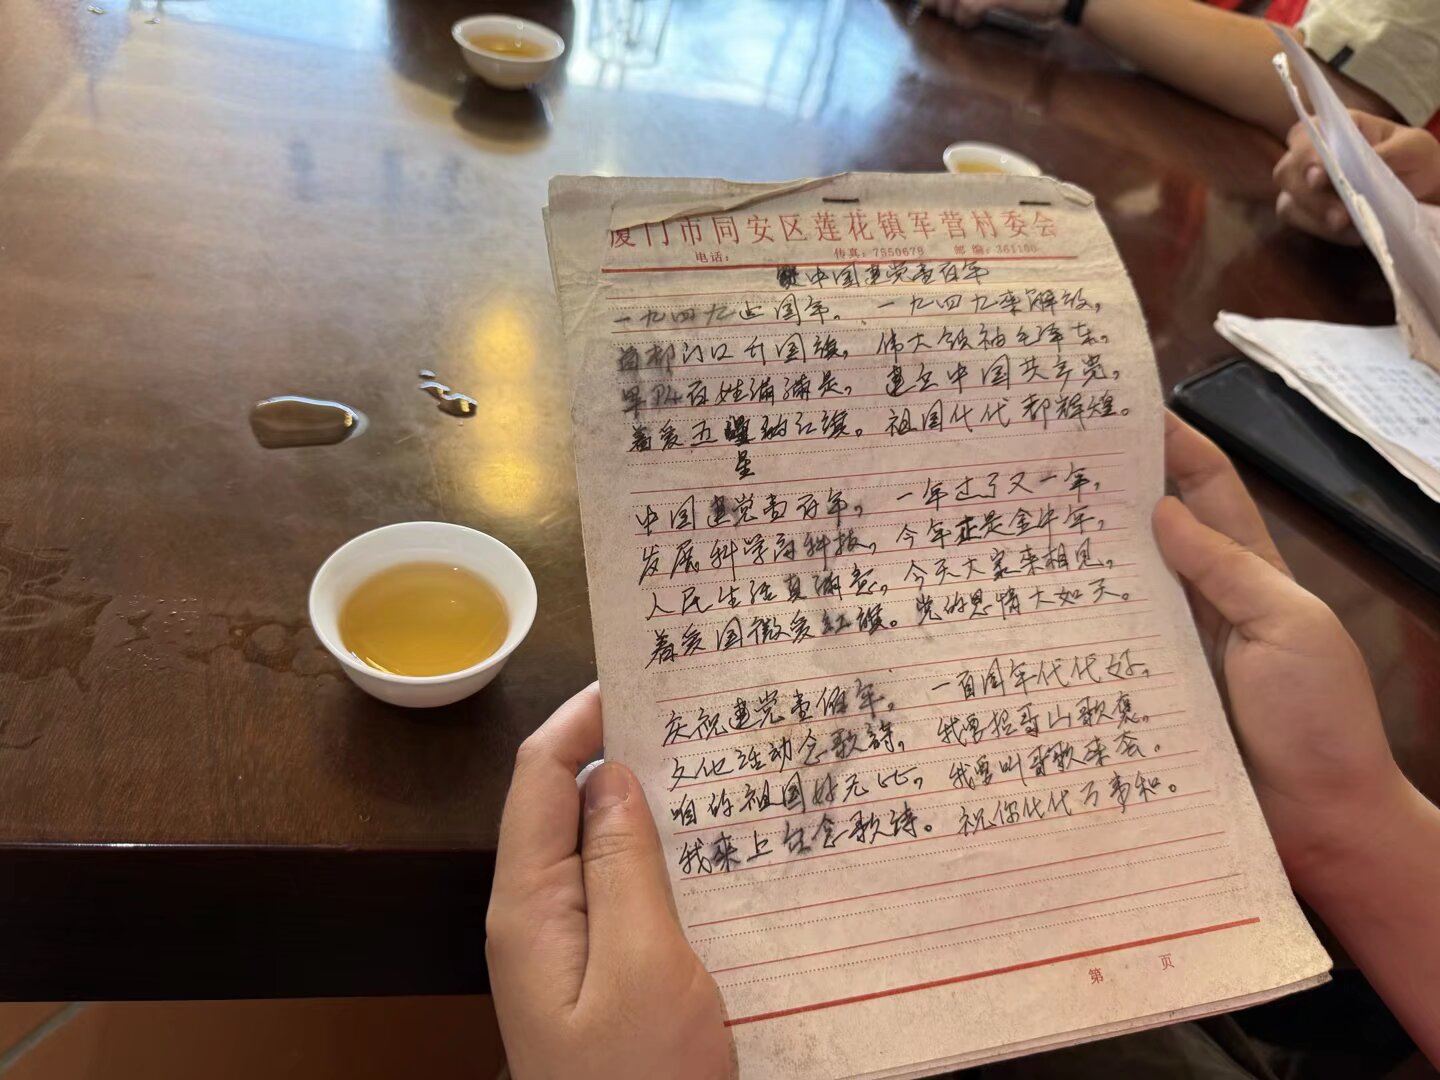 厦门市同安区莲花镇军营村委会
电话: 传真: 7550678 邮编: 361100
中国建党壹百年
一九四九边国年。 一九四九来解放，
首都门口升国旗， 伟大领袖毛泽东。
百姓满满是， 建立中国共产党，
着爱五的红旗。 祖国代代都辉煌。
星
中国建党壹百年， 一年过了又一年，
发展科学高科技， 今年正是金牛年，
人民生活真满意， 今天大家来相见，
着爱国徽爱红旗。 党的恩情大如天。
庆祝建党壹佰年， 一百周年代代好，
文化活动念歌詩， 我要唱山歌褒，
咱的祖国好无比， 我要叫歌来
我来上台念歌诗。 祝你代代万事和。
第 页